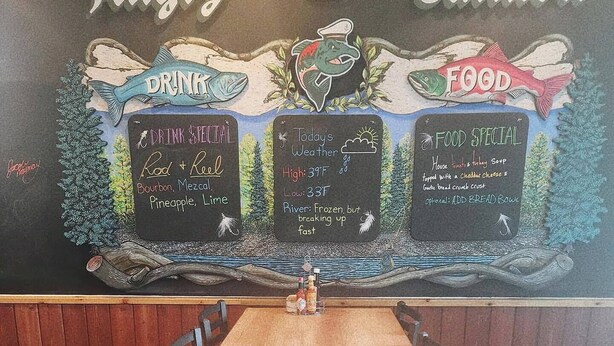 DRINK
FOOD
DRINK SPECIAL
Rod + Reel
Bourbon, Mezcal,
Pineapple, Lime
Todays
Weather
High: 39°F
Low: 33°F
River: Frozen, but
breaking up
fast
FOOD SPECIAL
House turkey Soup
topped with a cheddar cheese &
Garlic bread crumb crust
optional: ADD BREAD BOWL